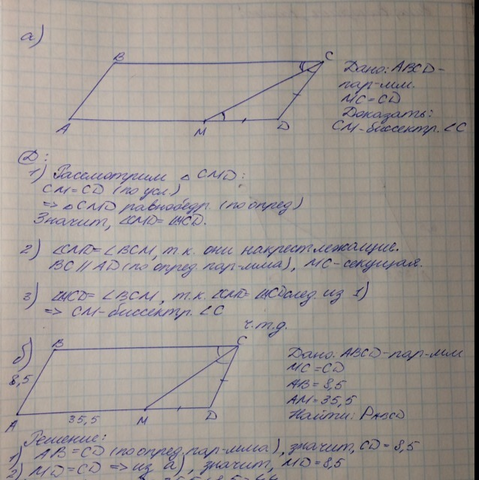 а)
B
C
A
M
D
Дано: ABCD-
пар-мм.
MC=CD
Доказать:
CM-биссектр. ∠C
Д:
1) Рассмотрим △CMD:
CM=CD (по усл)
⇒ △CMD равнобедр. (по опред)
Значит, ∠CMD=∠MCD.
2) ∠CMD=∠BCM, т.к. они накрест лежащие.
BC∥AD (по опред. пар-мма), MC-секущая.
3) ∠MCD=∠BCM, т.к. ∠CMD=∠MCD(след. из 1)
⇒ CM-биссектр. ∠C
ч.т.д.
б)
B
C
8,5
A
35,5
M
D
Дано: ABCD-пар-мм
MC=CD
AB=8,5
AM=35,5
Найти: P ABCD
Решение:
1) AB=CD (по опред. пар-мма), значит, CD=8,5
2) MD=CD ⇒ из а), значит, MD=8,5